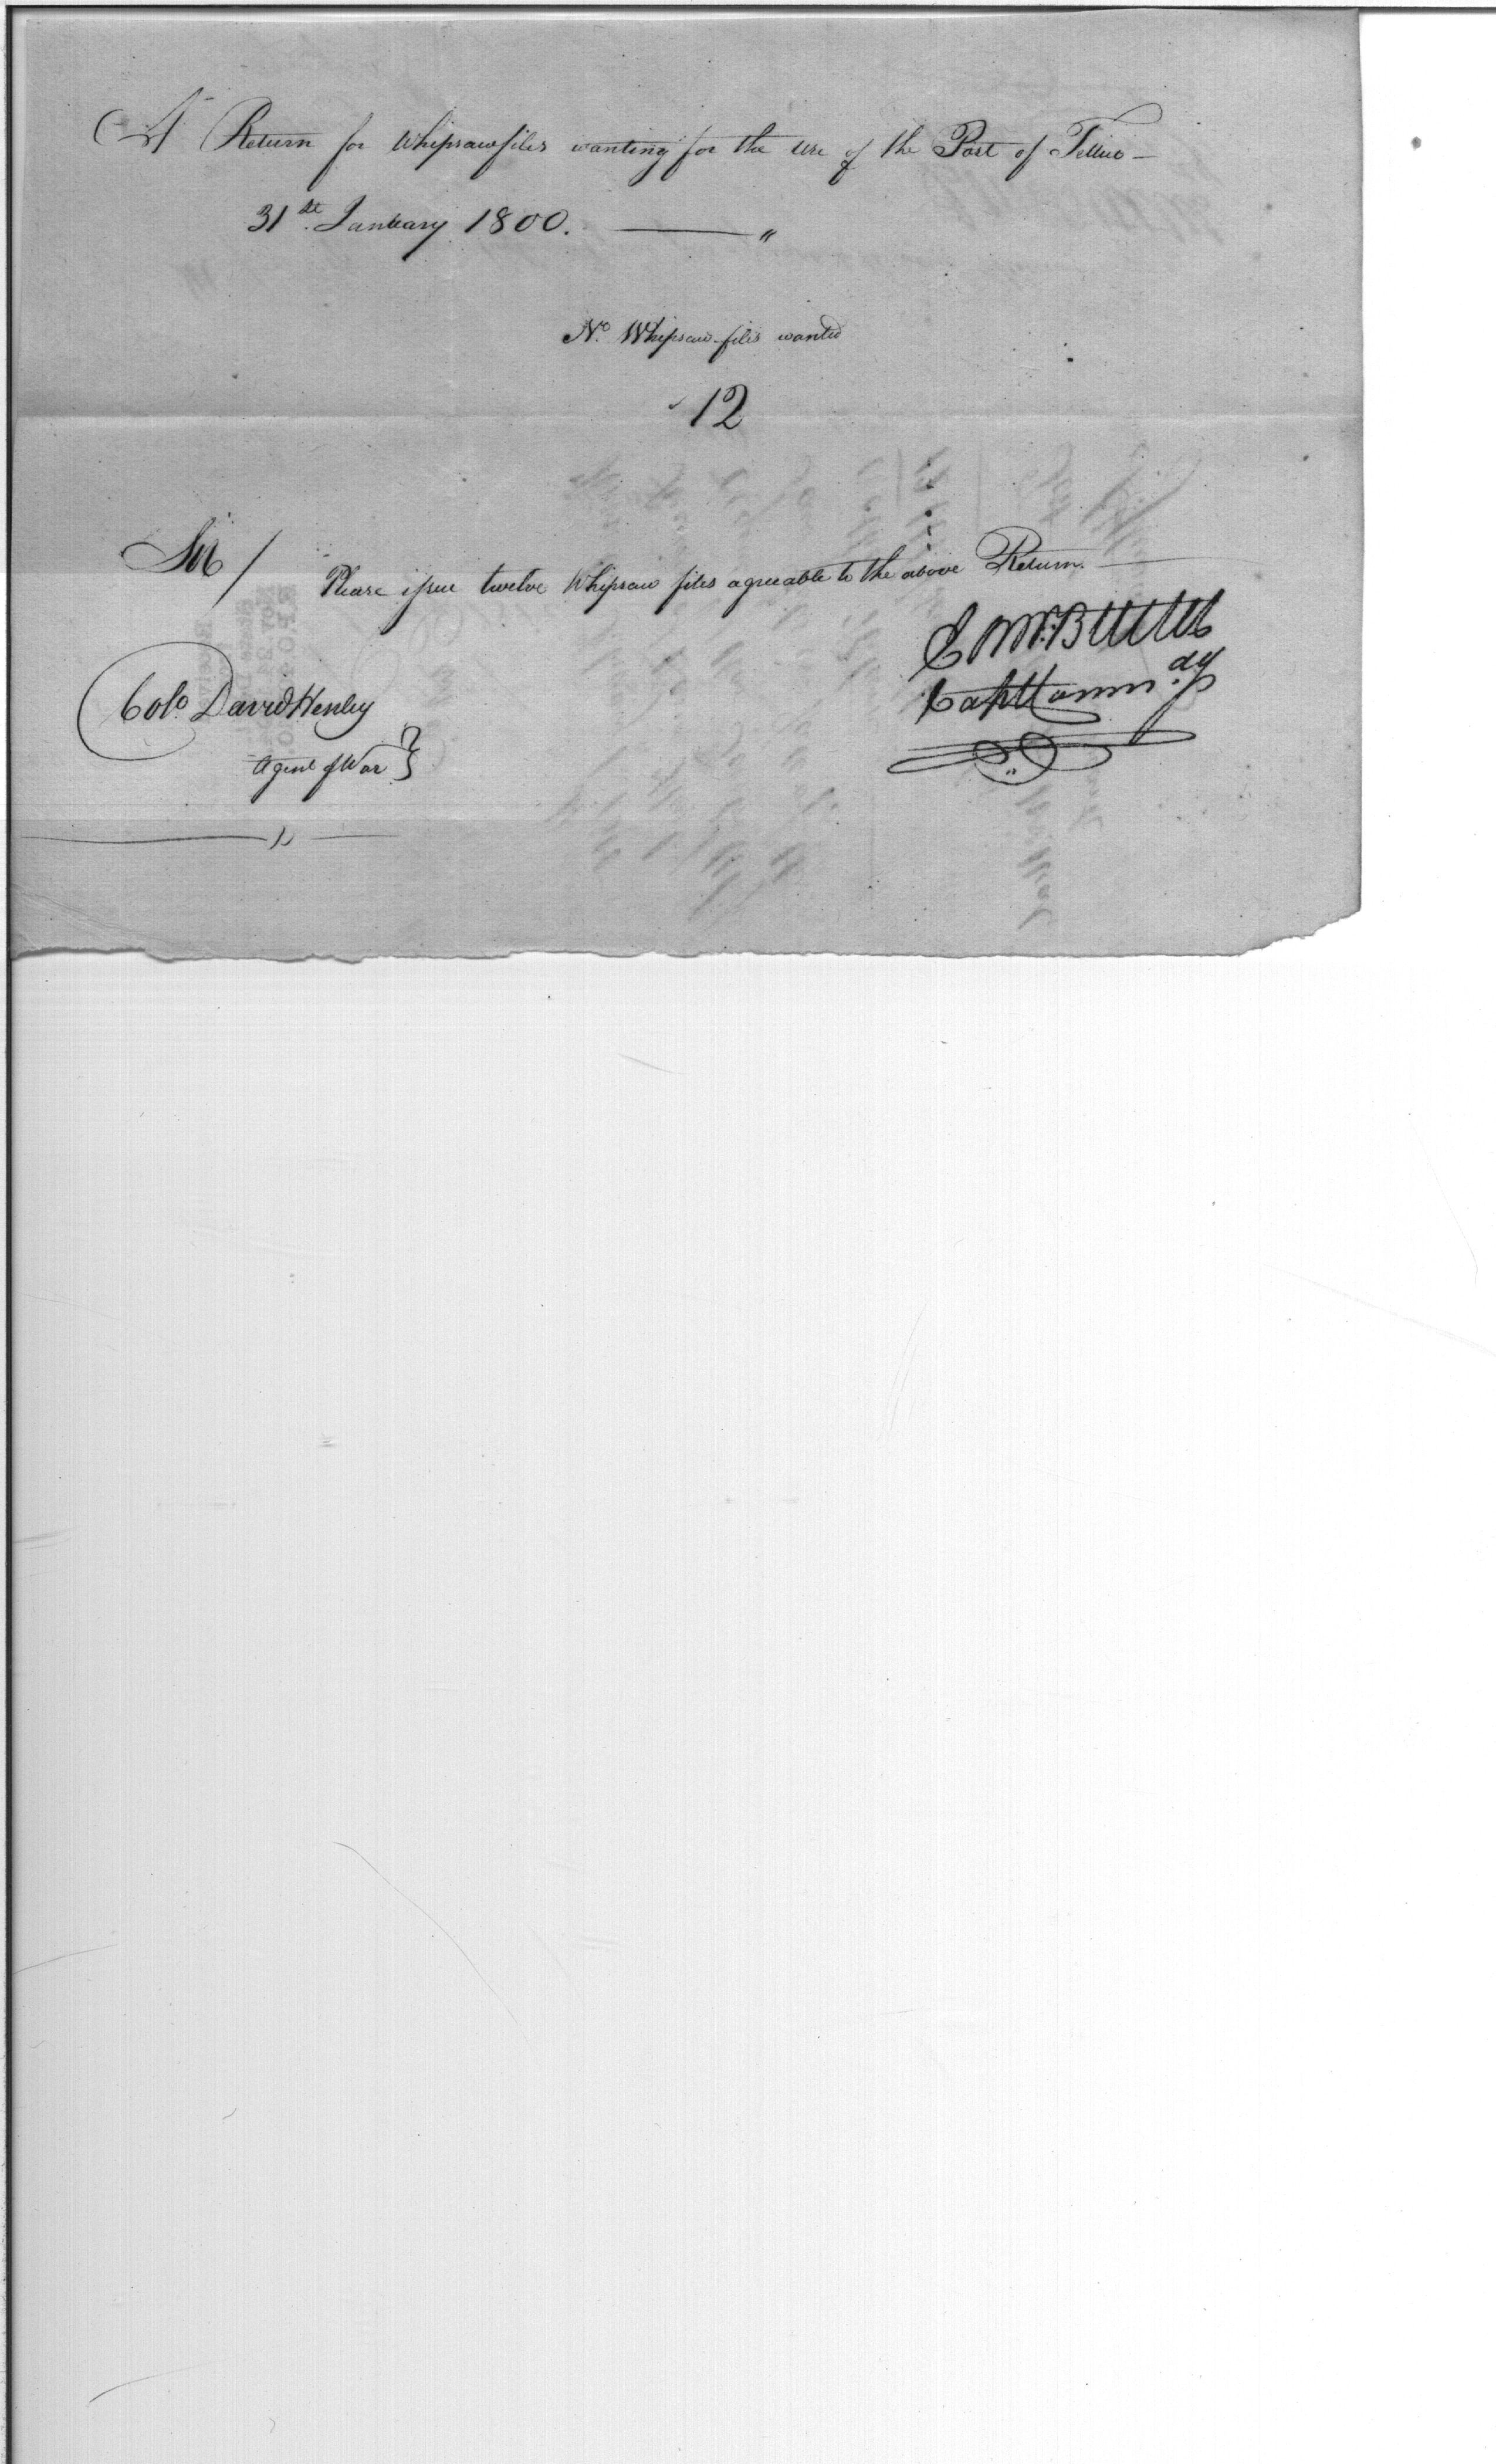 A Return for Whipsaw files wanting for the use of the Post of Tellico —
31st January 1800. — "
No. Whipsaw files wanted
12
Sir /
Please issue twelve Whipsaw files agreeable to the above Return. —
E Butler
Capt Commdg
Colo. David Henley
Agent of War